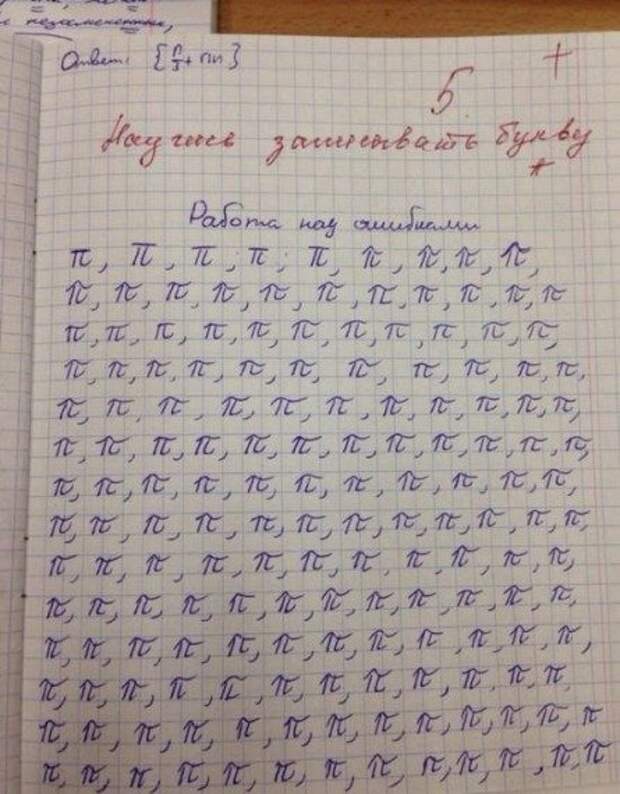 Ответ: {π/3 + πn}
5 +
Научись записывать букву π
Работа над ошибками
π, π, π, π, π, π, π, π, π,
π, π, π, π, π, π, π, π, π, π, π
π, π, π, π, π, π, π, π, π, π, π,
π, π, π, π, π, π, π, π, π, π, π,
π, π, π, π, π, π, π, π, π, π, π,
π, π, π, π, π, π, π, π, π, π, π, π,
π, π, π, π, π, π, π, π, π, π, π,
π, π, π, π, π, π, π, π, π, π, π, π,
π, π, π, π, π, π, π, π, π, π, π,
π, π, π, π, π, π, π, π, π, π, π, π,
π, π, π, π, π, π, π, π, π, π, π, π,
π, π, π, π, π, π, π, π, π, π, π, π
π, π, π, π, π, π, π, π, π, π, π, π, π
π, π, π, π, π, π, π, π, π, π, π, π, π